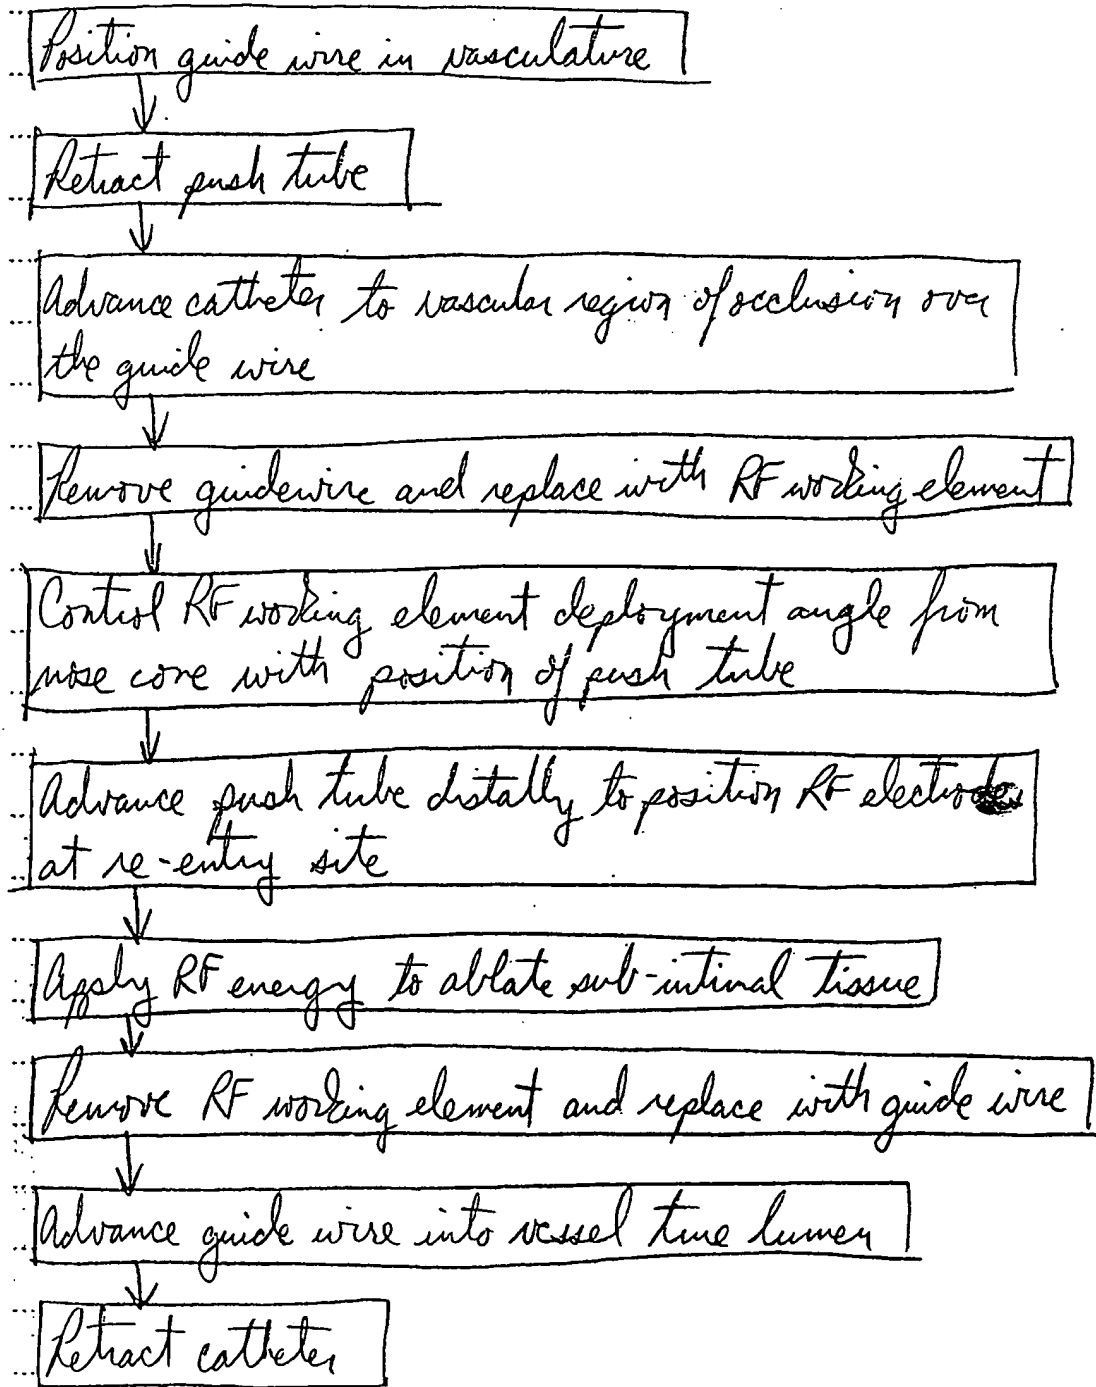 Position guide wire in vasculature
Retract push tube
Advance catheter to vascular region of occlusion over
the guide wire
Remove guidewire and replace with RF working element
Control RF working element deployment angle from
nose cone with position of push tube
Advance push tube distally to position RF electrode
at re-entry site
Apply RF energy to ablate sub-intimal tissue
Remove RF working element and replace with guide wire
Advance guide wire into vessel true lumen
Retract catheter